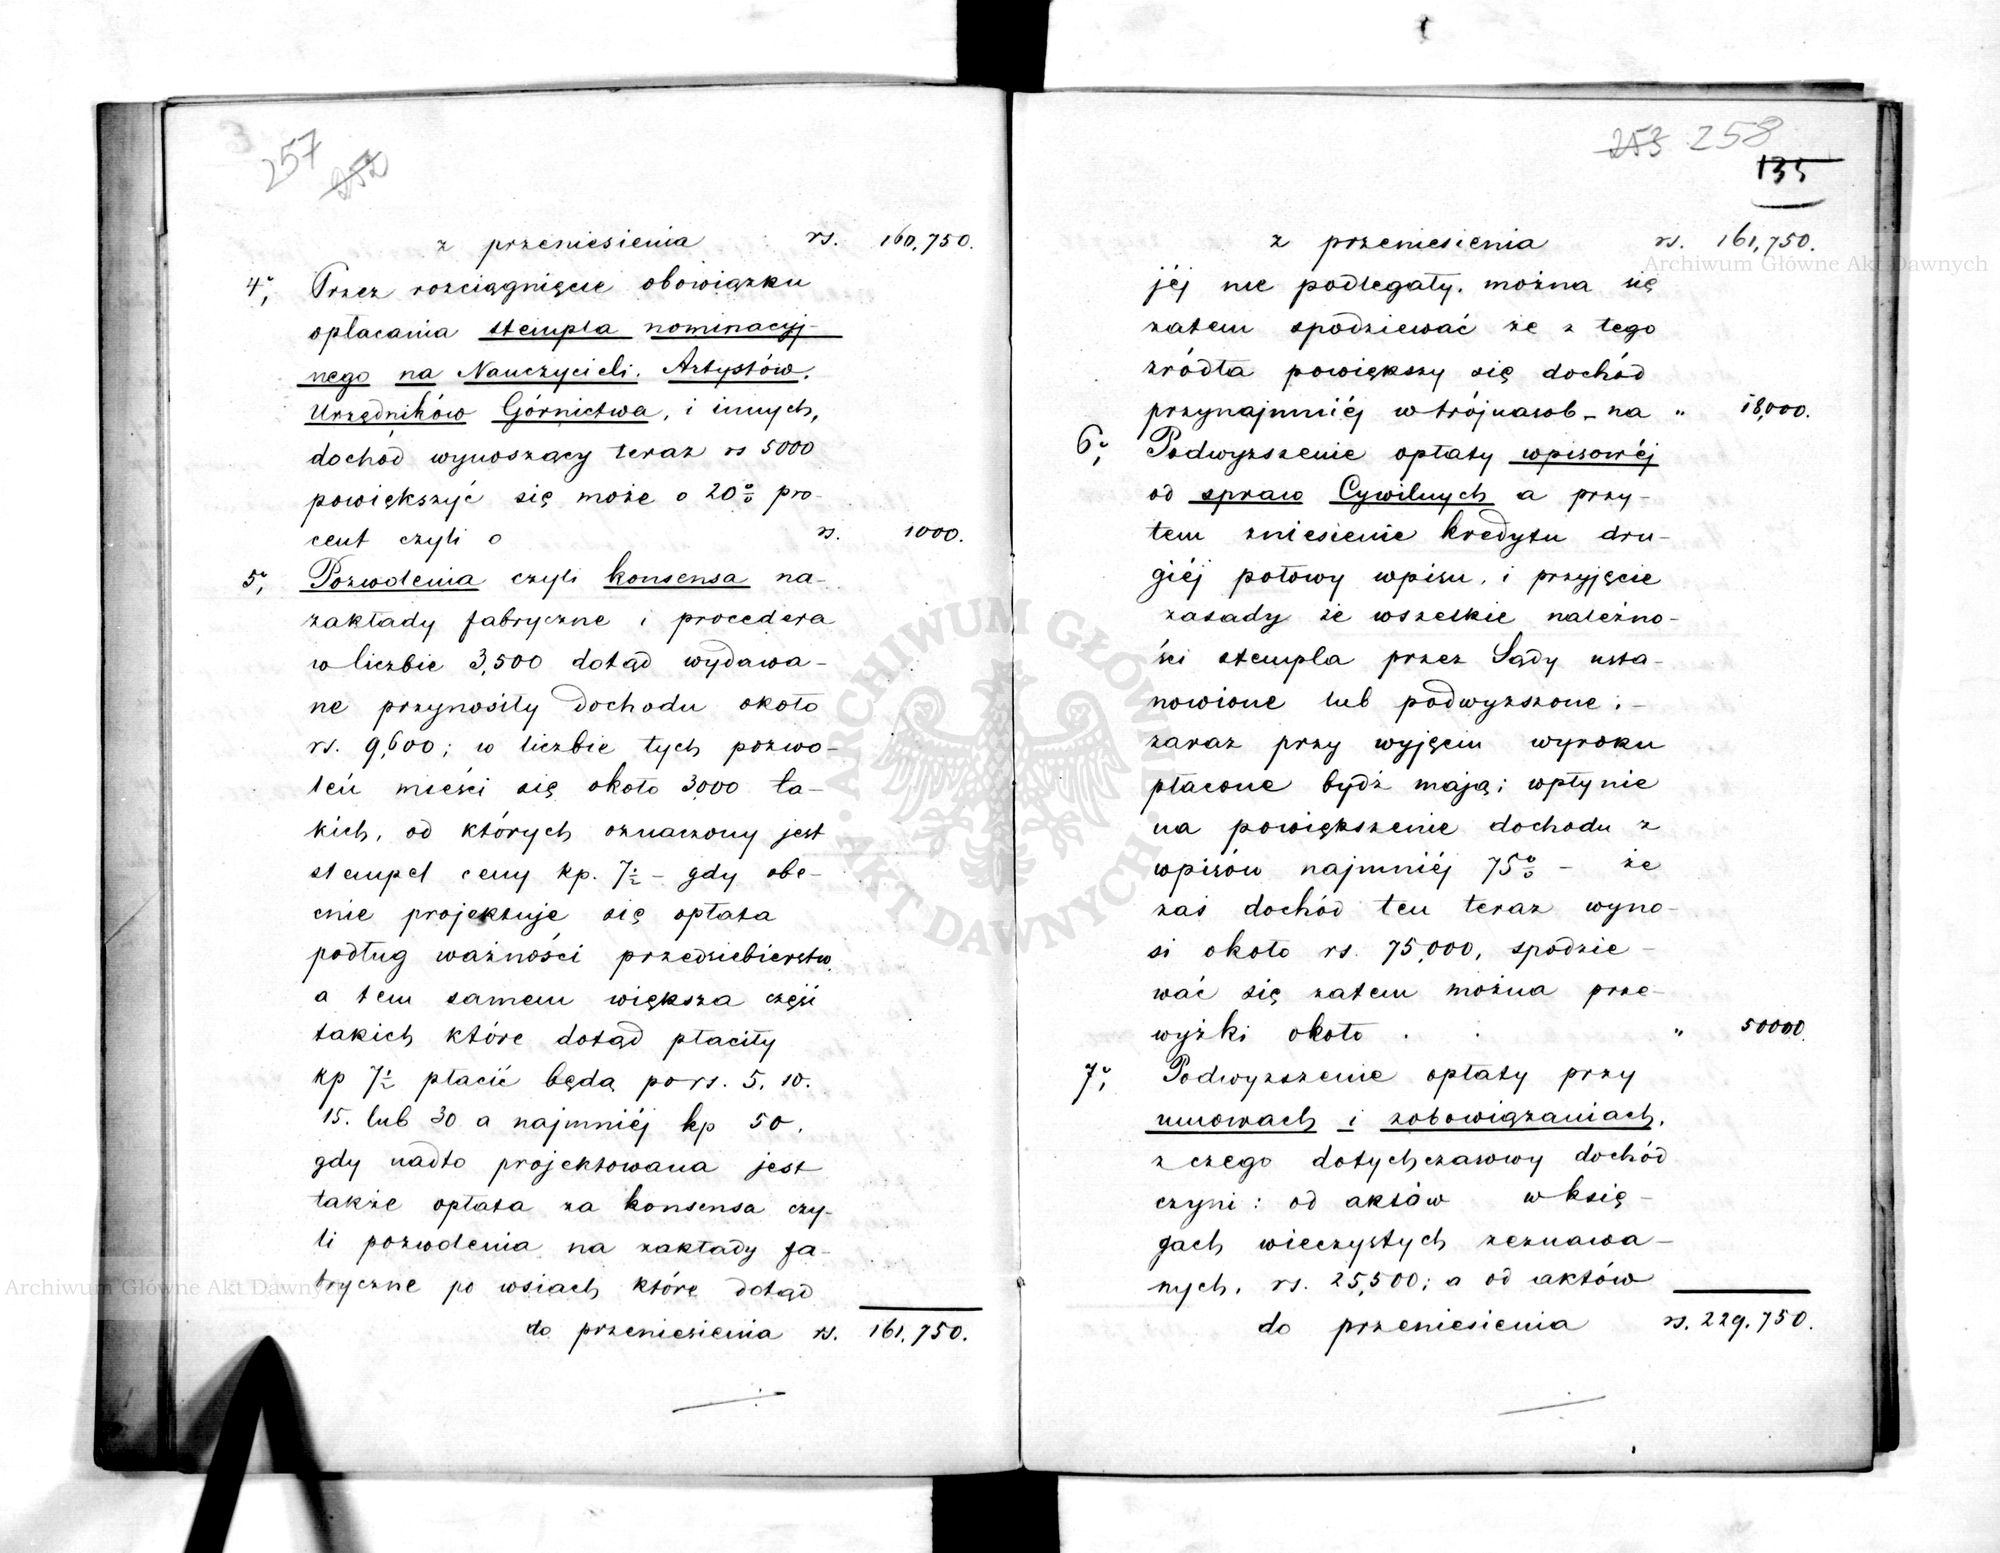 3
257
252
z przeniesienia rs. 160,750.
4°, Przez rozciągnięcie obowiązku
opłacania stempla nominacyj-
nego na Nauczycieli. Artystów.
Urzędników Górnictwa, i innych,
dochód wynoszący teraz rs 5000
powiększyć się może o 20% pro-
cent czyli o rs. 1000.
5°, Pozwolenia czyli konsensa na-
zakłady fabryczne i procedera
w liczbie 3,500 dotąd wydawa-
ne przynosiły dochodu około
rs. 9,600; w liczbie tych pozwo-
leń mieści się około 3,000 ta-
kich, od których oznaczony jest
stempel ceny kp. 7½ - gdy obe-
cnie projektuje się opłata
podług ważności przedsiebierstw.
a tem samem większa część
takich które dotąd płaciły
kp 7½ płacić będą po rs. 5. 10.
15. lub 30 a najmniéj kp 50.
gdy nadto projektowana jest
także opłata za konsensa czy-
li pozwolenia na zakłady fa-
bryczne po wsiach które dotąd
do przeniesienia rs. 161,750.
253 258
135
z przeniesienia rs. 161,750.
jéj nie podlegały. można się
zatem spodziewać że z tego
źródła powiększy się dochód
przynajmniéj w trójnasob - na " 18,000.
6°, Podwyższenie opłaty wpisowéj
od spraw Cywilnych a przy-
tem zniesienie kredytu dru-
giéj połowy wpisu, i przyjęcie
zasady że wszelkie należno-
ści stempla przez Sądy usta-
nowione lub podwyższone; -
zaraz przy wyjęciu wyroku
płacone bydź mają; wpłynie
na powiększenie dochodu z
wpisów najmniéj 75% - że
zaś dochód ten teraz wyno-
si około rs. 75,000, spodzie-
wać się zatem można prze-
wyżki około . . " 50000.
7°, Podwyższenie opłaty przy
umowach i zobowiązaniach.
z czego dotychczasowy dochód
czyni: od aktów w księ-
gach wieczystych zeznawa-
nych, rs. 25,500; a od aktów
do przeniesienia rs. 229,750.
Archiwum Główne Akt Dawnych
Archiwum Główne Akt Dawnych
ARCHIWUM GŁÓWNE
AKT DAWNYCH